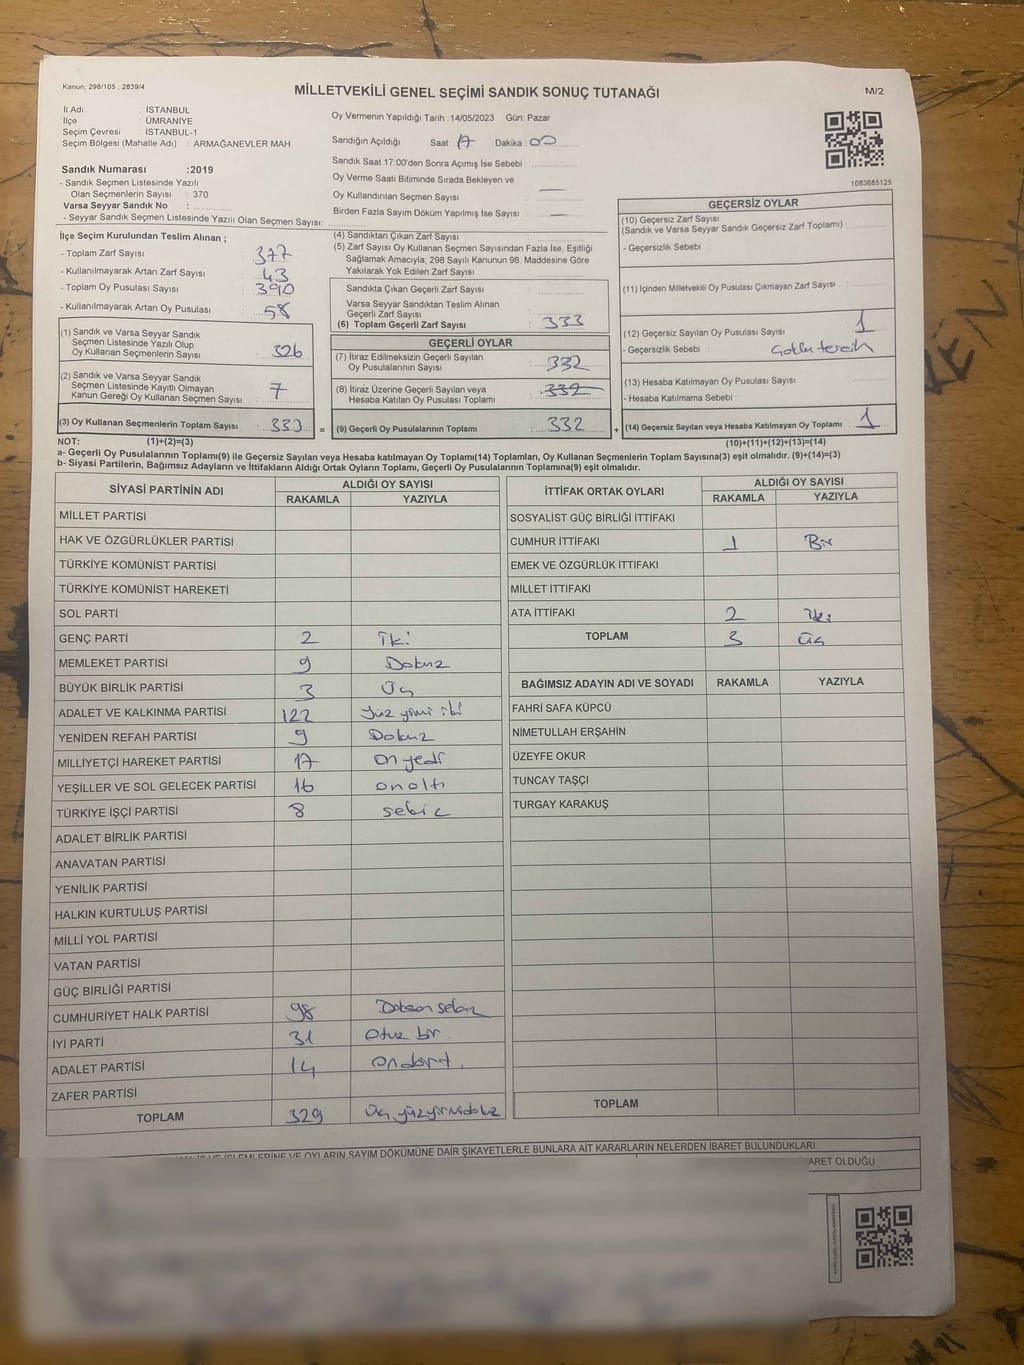 Kanun; 298/105 , 2839/4
MİLLETVEKİLİ GENEL SEÇİMİ SANDIK SONUÇ TUTANAĞI
M/2
İl Adı : İSTANBUL
İlçe : ÜMRANİYE
Seçim Çevresi : İSTANBUL-1
Seçim Bölgesi (Mahalle Adı) : ARMAĞANEVLER MAH.
Oy Vermenin Yapıldığı Tarih :14/05/2023 Gün: Pazar
Sandığın Açıldığı Saat: 17 Dakika: 00
Sandık Saat 17:00'den Sonra Açımış İse Sebebi :
Oy Verme Saati Bitiminde Sırada Bekleyen ve
Oy Kullandırılan Seçmen Sayısı :
Birden Fazla Sayım Döküm Yapılmış İse Sayısı :
1083685125
Sandık Numarası :2019
- Sandık Seçmen Listesinde Yazılı
Olan Seçmenlerin Sayısı : 370
Varsa Seyyar Sandık No :
- Seyyar Sandık Seçmen Listesinde Yazılı Olan Seçmen Sayısı:
İlçe Seçim Kurulundan Teslim Alınan ;
- Toplam Zarf Sayısı : 377
- Kullanılmayarak Artan Zarf Sayısı : 43
- Toplam Oy Pusulası Sayısı : 390
- Kullanılmayarak Artan Oy Pusulası : 58
(1) Sandık ve Varsa Seyyar Sandık
Seçmen Listesinde Yazılı Olup
Oy Kullanan Seçmenlerin Sayısı : 326
(2) Sandık ve Varsa Seyyar Sandık
Seçmen Listesinde Kayıtlı Olmayan
Kanun Gereği Oy Kullanan Seçmen Sayısı : 7
(3) Oy Kullanan Seçmenlerin Toplam Sayısı : 333 =
(4) Sandıktan Çıkan Zarf Sayısı :
(5) Zarf Sayısı Oy Kullanan Seçmen Sayısından Fazla İse, Eşitliği
Sağlamak Amacıyla, 298 Sayılı Kanunun 98. Maddesine Göre
Yakılarak Yok Edilen Zarf Sayısı :
Sandıkta Çıkan Geçerli Zarf Sayısı :
Varsa Seyyar Sandıktan Teslim Alınan
Geçerli Zarf Sayısı :
(6) Toplam Geçerli Zarf Sayısı : 333
GEÇERLİ OYLAR
(7) İtiraz Edilmeksizin Geçerli Sayılan
Oy Pusulalarının Sayısı : 332
(8) İtiraz Üzerine Geçerli Sayılan veya
Hesaba Katılan Oy Pusulası Toplamı : 332
(9) Geçerli Oy Pusulalarının Toplamı : 332 +
GEÇERSİZ OYLAR
(10) Geçersiz Zarf Sayısı
(Sandık ve Varsa Seyyar Sandık Geçersiz Zarf Toplamı) :
- Geçersizlik Sebebi :
(11) İçinden Milletvekili Oy Pusulası Çıkmayan Zarf Sayısı :
(12) Geçersiz Sayılan Oy Pusulası Sayısı : 1
- Geçersizlik Sebebi :
(13) Hesaba Katılmayan Oy Pusulası Sayısı :
- Hesaba Katılmama Sebebi :
(14) Geçersiz Sayılan veya Hesaba Katılmayan Oy Toplamı : 1
NOT: (1)+(2)=(3) (10)+(11)+(12)+(13)=(14)
a- Geçerli Oy Pusulalarının Toplamı(9) ile Geçersiz Sayılan veya Hesaba katılmayan Oy Toplamı(14) Toplamları, Oy Kullanan Seçmenlerin Toplam Sayısına(3) eşit olmalıdır. (9)+(14)=(3)
b- Siyasi Partilerin, Bağımsız Adayların ve İttifakların Aldığı Ortak Oyların Toplamı, Geçerli Oy Pusulalarının Toplamına(9) eşit olmalıdır.
SİYASİ PARTİNİN ADI
ALDIĞI OY SAYISI
RAKAMLA YAZIYLA
MİLLET PARTİSİ
HAK VE ÖZGÜRLÜKLER PARTİSİ
TÜRKİYE KOMÜNİST PARTİSİ
TÜRKİYE KOMÜNİST HAREKETİ
SOL PARTİ
GENÇ PARTİ 2 iki
MEMLEKET PARTİSİ 9 Dokuz
BÜYÜK BİRLİK PARTİSİ 3 Üç
ADALET VE KALKINMA PARTİSİ 122 Yüz yirmi iki
YENİDEN REFAH PARTİSİ 9 Dokuz
MİLLİYETÇİ HAREKET PARTİSİ 17 on yedi
YEŞİLLER VE SOL GELECEK PARTİSİ 16 onaltı
TÜRKİYE İŞÇİ PARTİSİ 8 sekiz
ADALET BİRLİK PARTİSİ
ANAVATAN PARTİSİ
YENİLİK PARTİSİ
HALKIN KURTULUŞ PARTİSİ
MİLLİ YOL PARTİSİ
VATAN PARTİSİ
GÜÇ BİRLİĞİ PARTİSİ
CUMHURİYET HALK PARTİSİ 98 Doksan sekiz
İYİ PARTİ 31 otuz bir
ADALET PARTİSİ 14 ondört
ZAFER PARTİSİ
TOPLAM 329 Üç yüzyirmidokuz
İTTİFAK ORTAK OYLARI
ALDIĞI OY SAYISI
RAKAMLA YAZIYLA
SOSYALİST GÜÇ BİRLİĞİ İTTİFAKI
CUMHUR İTTİFAKI 1 Bir
EMEK VE ÖZGÜRLÜK İTTİFAKI
MİLLET İTTİFAKI
ATA İTTİFAKI 2 iki
TOPLAM 3 Üç
BAĞIMSIZ ADAYIN ADI VE SOYADI RAKAMLA YAZIYLA
FAHRİ SAFA KÜPCÜ
NİMETULLAH ERŞAHİN
ÜZEYFE OKUR
TUNCAY TAŞÇI
TURGAY KARAKUŞ
TOPLAM
İŞLEMLERİNE VE OYLARIN SAYIM DÖKÜMÜNE DAİR ŞİKAYETLERLE BUNLARA AİT KARARLARIN NELERDEN İBARET BULUNDUKLARI
ARET OLDUĞU